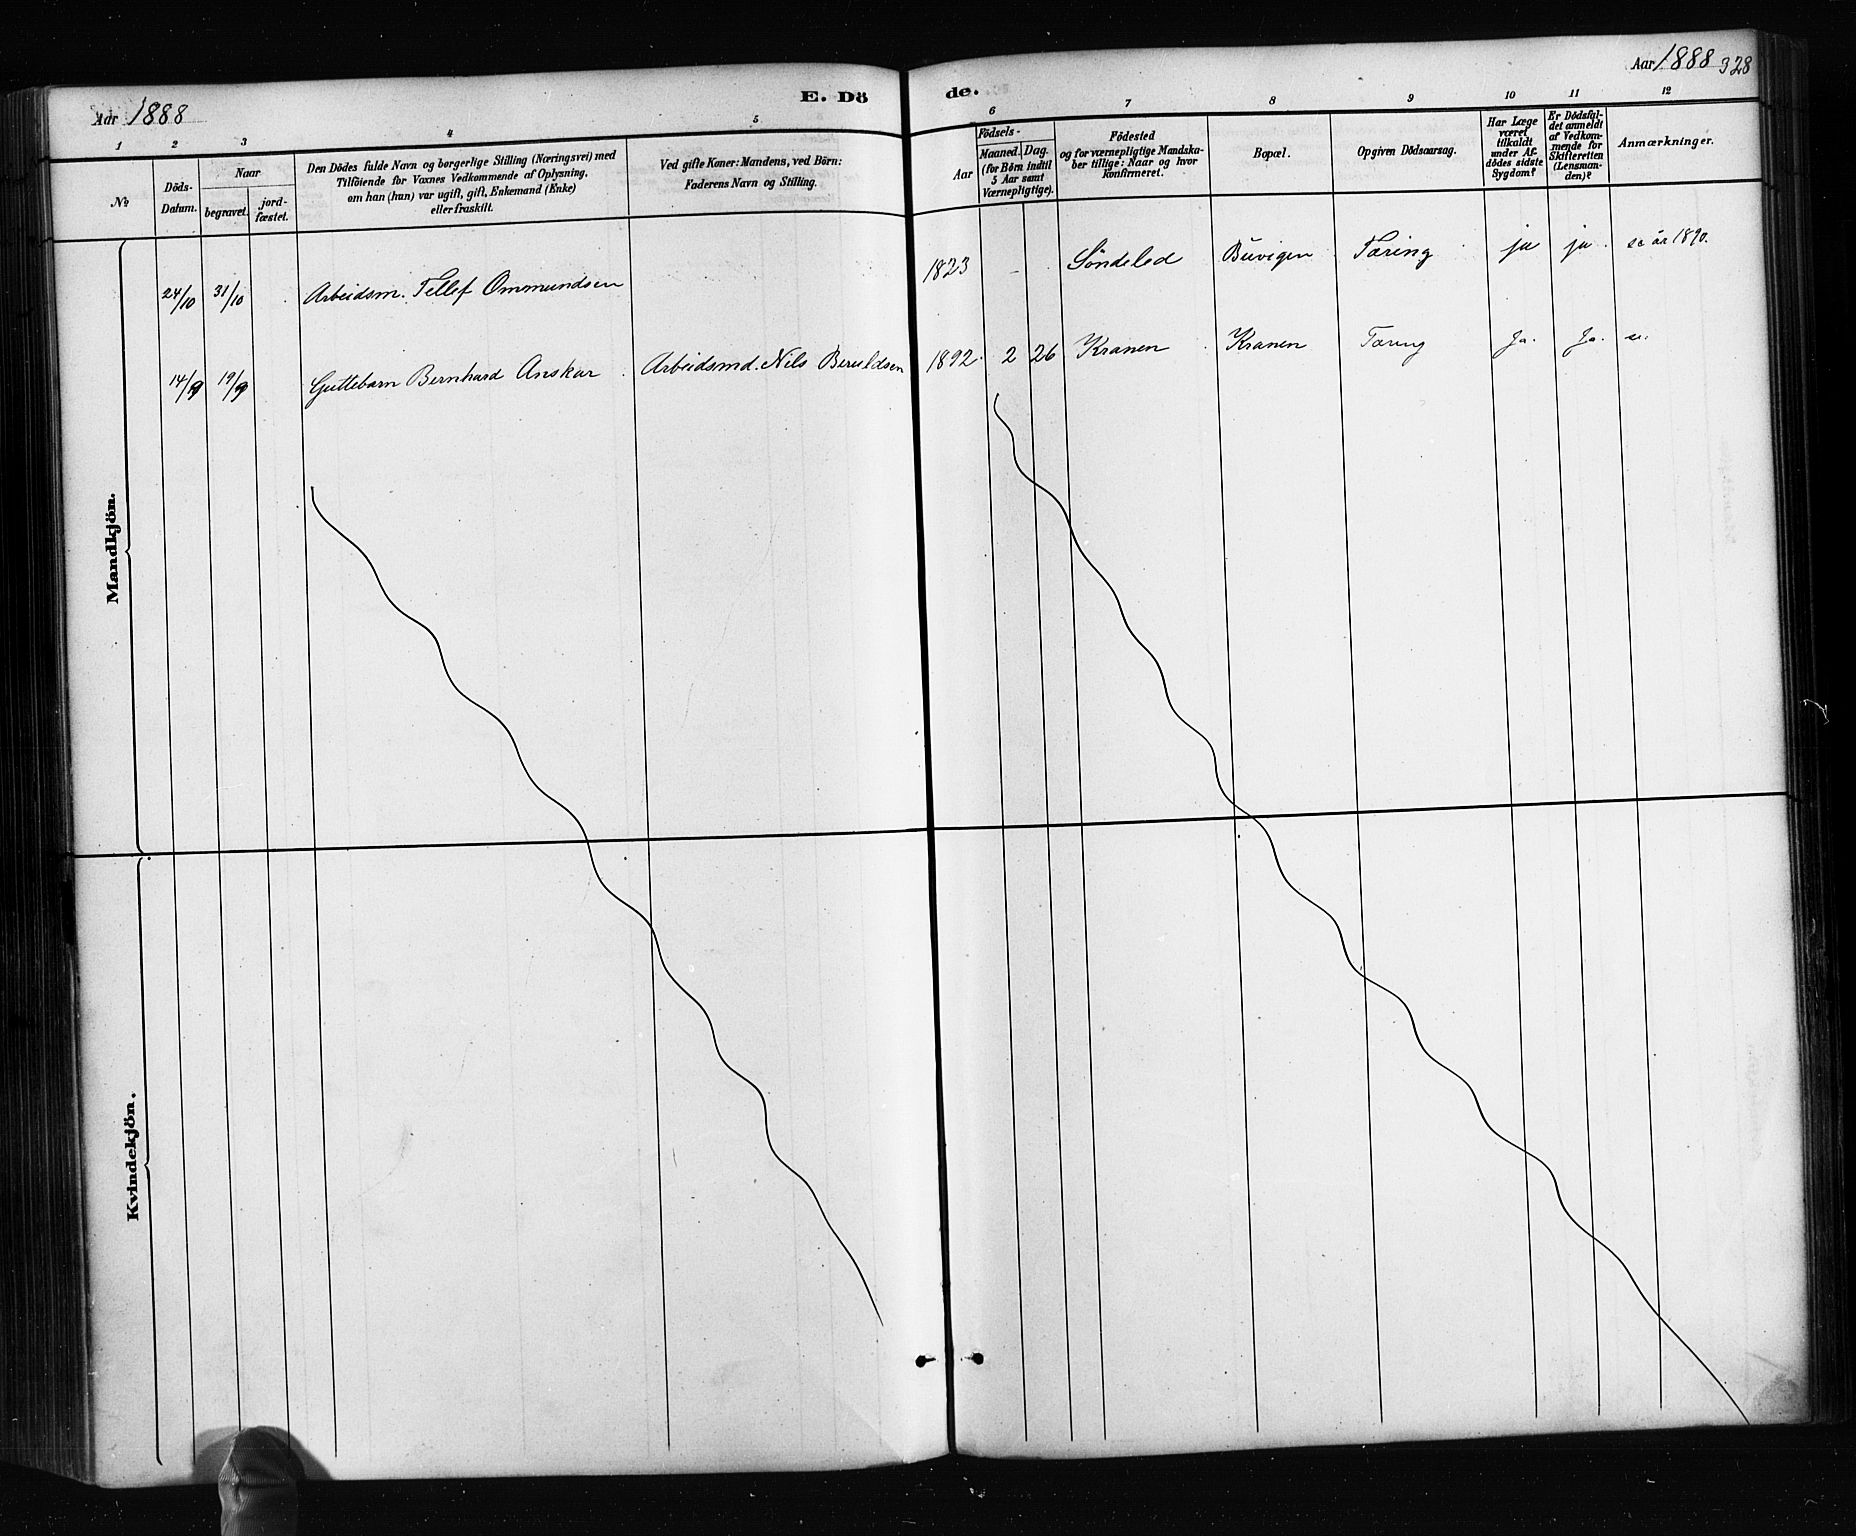 Aar 1888
E. Dö
de.
Aar 1888 328
1 2 3 4 5
6 7 8 9 10 11 12
No
Döds-
Datum.
Naar
begravet.
jord-
fæstet.
Den Dödes fulde Navn og borgerlige Stilling (Næringsvei) med
Tilföiende for Voxnes Vedkommende af Oplysning,
om han (hun) var ugift, gift, Enkemand (Enke)
eller fraskilt.
Ved gifte Koner: Mandens, ved Börn:
Faderens Navn og Stilling.
Födsels-
Aar
Maaned. Dag.
(for Börn indtil
5 Aar samt
Værnepligtige).
Födested
og for værnepligtige Mandska-
ber tillige: Naar og hvor
konfirmeret.
Bopæl.
Opgiven Dödsaarsag.
Har Læge
været
tilkaldt
under Af-
dödes sidste
Sygdom?
Er Dödsfal-
det anmeldt
af Vedkom-
mende for
Skifteretten
(Lensman-
den)?
Anmærkninger.
Mandkjön.
24/10 31/10 Arbeidsm. Tellef Ommundsen 1823 - Söndeled Buvigen Tæring ja ja. se år 1890.
14/9 19/9 Guttebarn Bernhard Anskar. Arbeidsmd. Nils Beruldsen 1892. 2 26 Kranen Kranen Tæring Ja. Ja. se.
Kvindekjön.